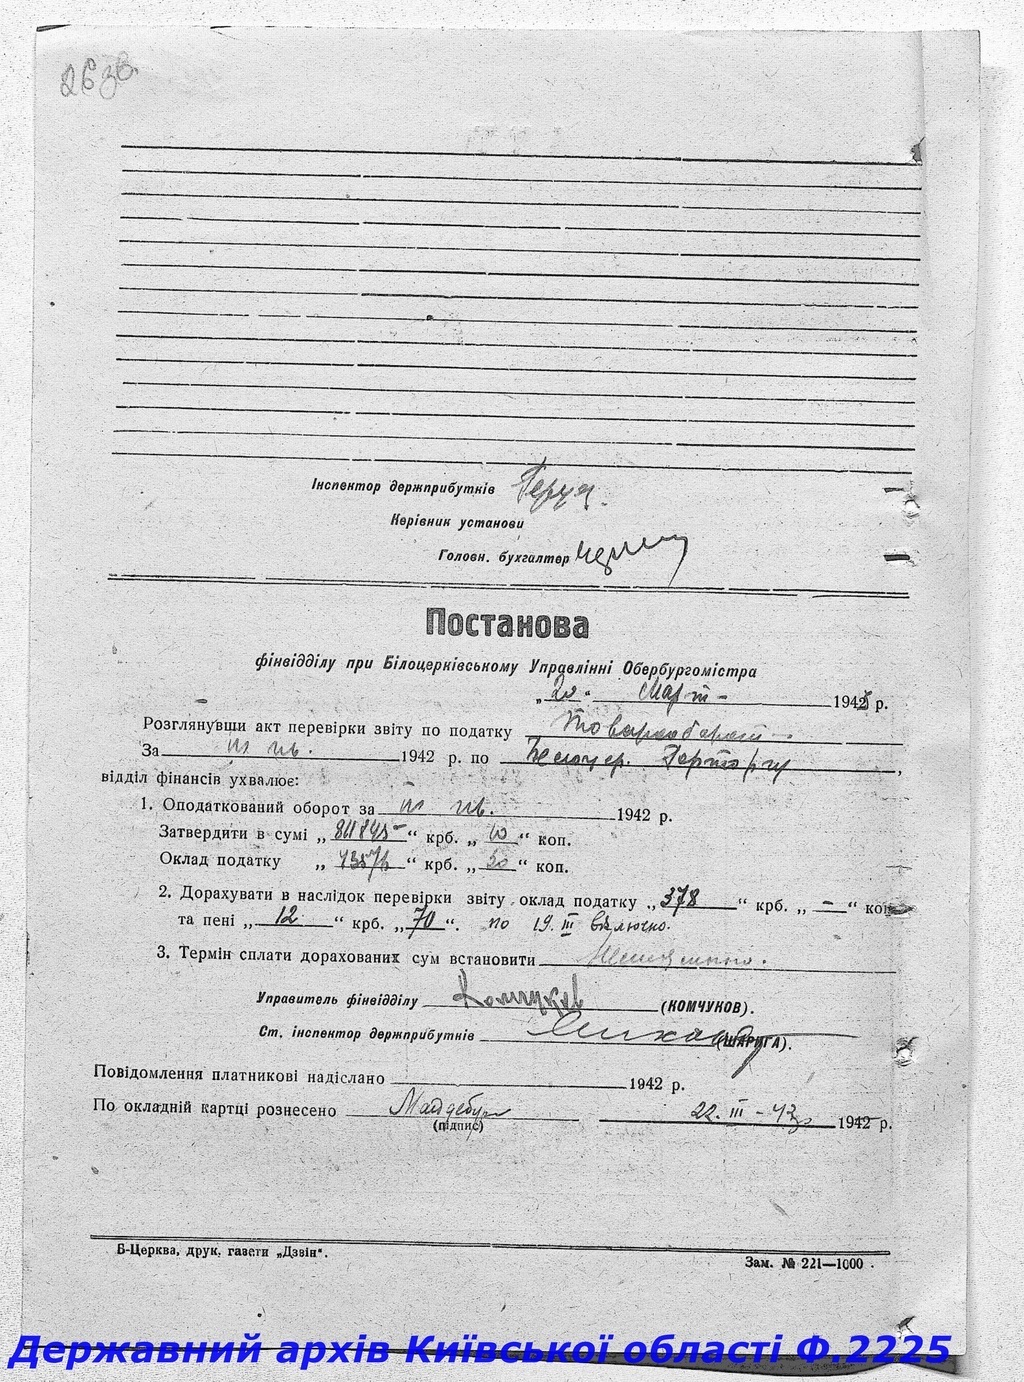 26 зв.
Інспектор держприбутків
Керівник установи
Головн. бухгалтер
Постанова
фінвідділу при Білоцерківському Управлінні Обербургомістра
„20“ Март 1943 р.
Розглянувши акт перевірки звіту по податку
За 1942 р. по
відділ фінансів ухвалює:
1. Оподаткований оборот за 1942 р.
Затвердити в сумі „ “ крб. „ “ коп.
Оклад податку „ “ крб. „ “ коп.
2. Дорахувати в наслідок перевірки звіту оклад податку „378“ крб. „—“ коп
та пені „12“ крб. „70“. по 19. III включно.
3. Термін сплати дорахованих сум встановити
Управитель фінвідділу Комчуков (КОМЧУКОВ).
Ст. інспектор держприбутків (ШАРИГА).
Повідомлення платникові надіслано 1942 р.
По окладній картці рознесено 22. III – 43 1942 р.
(підпис)
Б-Церква, друк. газети „Дзвін“.
Зам. № 221—1000
Державний архів Київської області Ф.2225